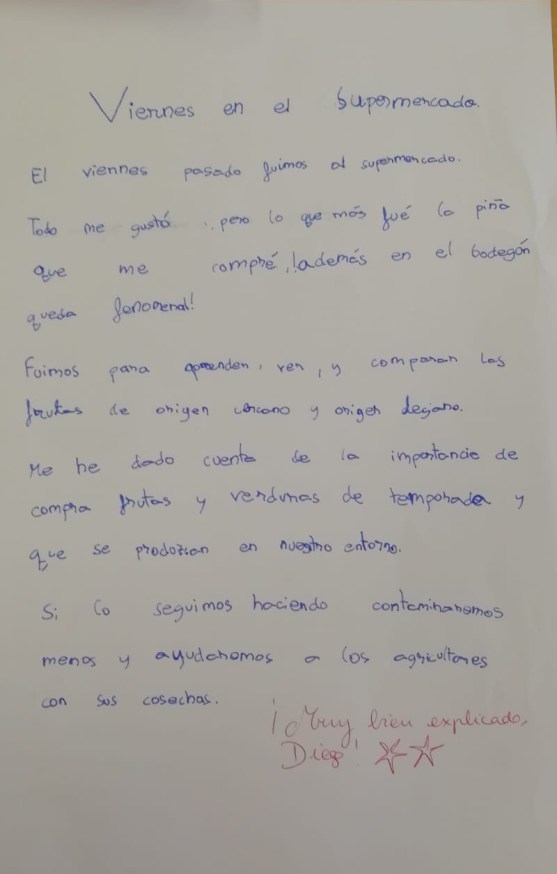 Viernes en el Supermercado.
El viernes pasado fuimos al supermercado.
Todo me gustó, pero lo que más fué la piña
que me compré, !además en el bodegón
queda fenomenal!
Fuimos para aprender, ver, y comparar las
frutas de origen cercano y origen lejano.
Me he dado cuenta de la importancia de
compra frutas y verduras de temporada y
que se produzcan en nuestro entorno.
Si lo seguimos haciendo contaminaremos
menos y ayudaremos a los agricultores
con sus cosechas.
¡Muy bien explicado,
Diego!